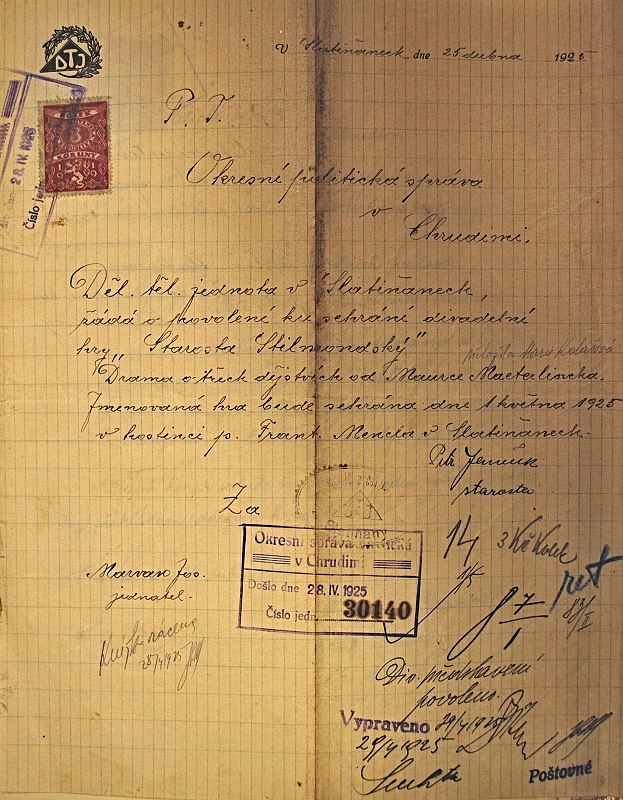 DTJ
V Slatiňanech dne 25 dubna 1925
28.IV.1925
Číslo jedn.
3
KORUNY
1919
P. T.
Okresní politická správa
v
Chrudimi.
Děl. těl. jednota v Slatiňanech,
žádá o povolení ku sehrání divadelní
hry „Starosta Stilmondský"
přeložila Marie Kolárová
Drama o třech dějstvích od Maurce Maeterlincka.
Jmenovaná hra bude sehrána dne 1 května 1925
v hostinci p. Frant. Mencla v Slatiňanech.
Petr
starosta
Za
Okresní správa politická
v Chrudimi
Došlo dne 28.IV.1925
Číslo jedn. 30140
14
3 Kč Kolek
Marvan Jos.
jednatel.
28/4 1925
Div. představení
povoleno.
29/4 1925
Vypraveno
29/4 1925
Poštovné